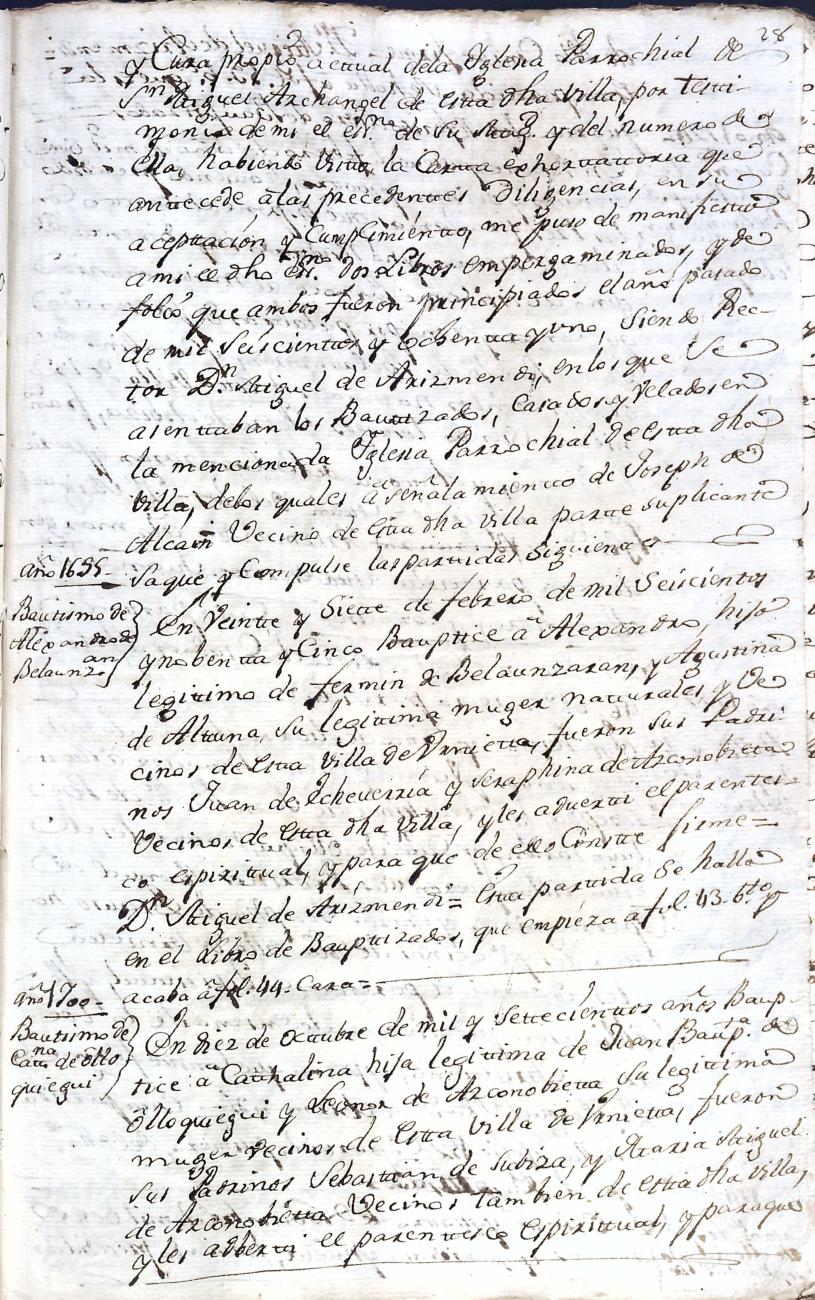 28
y Cura propio actual dela Yglesia Parrochial de
Sn Miguel Archangel de esta dha villa, por testi-
monio de mi el essno de su Magd. y del numero de
ella, habiendo visto la Carta exhortatoria que
antecede â las precedentes Diligencias, en su
aceptacion y Cumplimiento, me puso de manifiesto
ami el dho essno dos Libros empergaminados, y de
folio que ambos fueron principiados el año pasado
de mil seiscientos y ochenta y uno, siendo Rec-
tor Dn Miguel de Arizmendi, enlos que se
asentaban los Bautizados, Casados, y Velados en
la mencionada Yglesia Parrochial de esta dha
villa, delos quales â señalamiento de Joseph de
Alcain Vecino de esta dha villa parte suplicante
saque y Compulse las partidas siguientes
año 1695
Bautismo de
Alexandro de
Belaunzaran
En Veinte y Siete de febrero de mil Seiscientos
y nobenta y Cinco Bauptice â Alexandro, hijo
legitimo de fermin de Belaunzaran, y Agustina
de Altuna, su legitima muger naturales y Ve
cinos de esta villa de Vrnieta, fueron sus Padri-
nos Juan de Echeverria y Seraphina de Arconobieta
Vecinos de esta dha villa, y les adverti el parentes-
co espiritual, y para que de ello Conste firme=
Dn Miguel de Arizmendi= Esta partida se halla
en el Libro de Bauptizados, que empieza â fol. 43. bto y
acaba â fol. 44. Cara=
año 1700=
Bautismo de
Cattna de ôllo
quiegui
En diez de Octubre de mil y Settecientos años Baup-
tice â Cathalina hija legitima de Juan Baupta de
ôlloquiegui y Leonor de Arconobieta su legitima
muger Vecinos de esta villa de Vrnieta, fueron
sus Padrinos Sebastian de Subiza, y Maria Miguel
de Arconobieta Vecinos tambien de esta dha villa,
y les adberti el parentesco espiritual, y para que